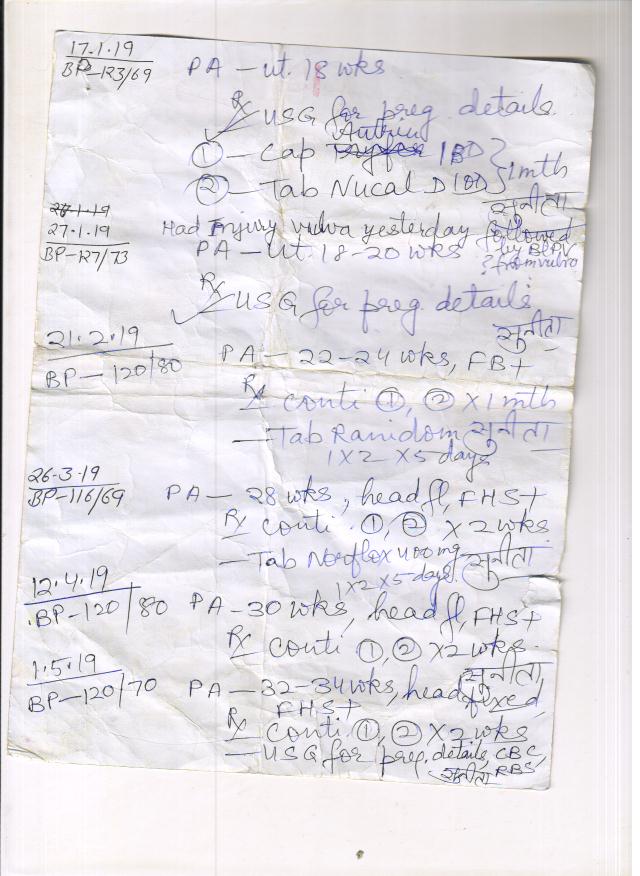 17.1.19
BP-123/69 PA - ut. 18 wks
Rx USG for preg. details
Autrin
① - Cap 1BD
② - Tab Nucal D 1OD } 1 mth
सुनीता
27.1.19
27.1.19 Had Injury vulva yesterday followed
by BLPV
BP-127/73 PA - Ut. 18-20 wks ? from vulva
Rx USG for preg. details
सुनीता
21.2.19
BP-120/80 PA - 22-24 wks, FB+
Rx conti ①, ② x 1 mth
- Tab Ranidom सुनीता
1 x 2 x 5 days
26-3-19
BP-116/69 PA - 28 wks, head fl, FHS+
Rx conti. ①, ② x 2 wks
- Tab Norflox 400 mg सुनीता
1 x 2 x 5 days.
12.4.19
BP-120/80 PA - 30 wks, head fl, FHS+
Rx conti ①, ② x 2 wks.
सुनीता
1.5.19
BP-120/70 PA - 32-34 wks, head fixed,
FHS+
Rx conti. ①, ② x 2 wks
- USG for preg. details, CBC,
सुनीता RBS,